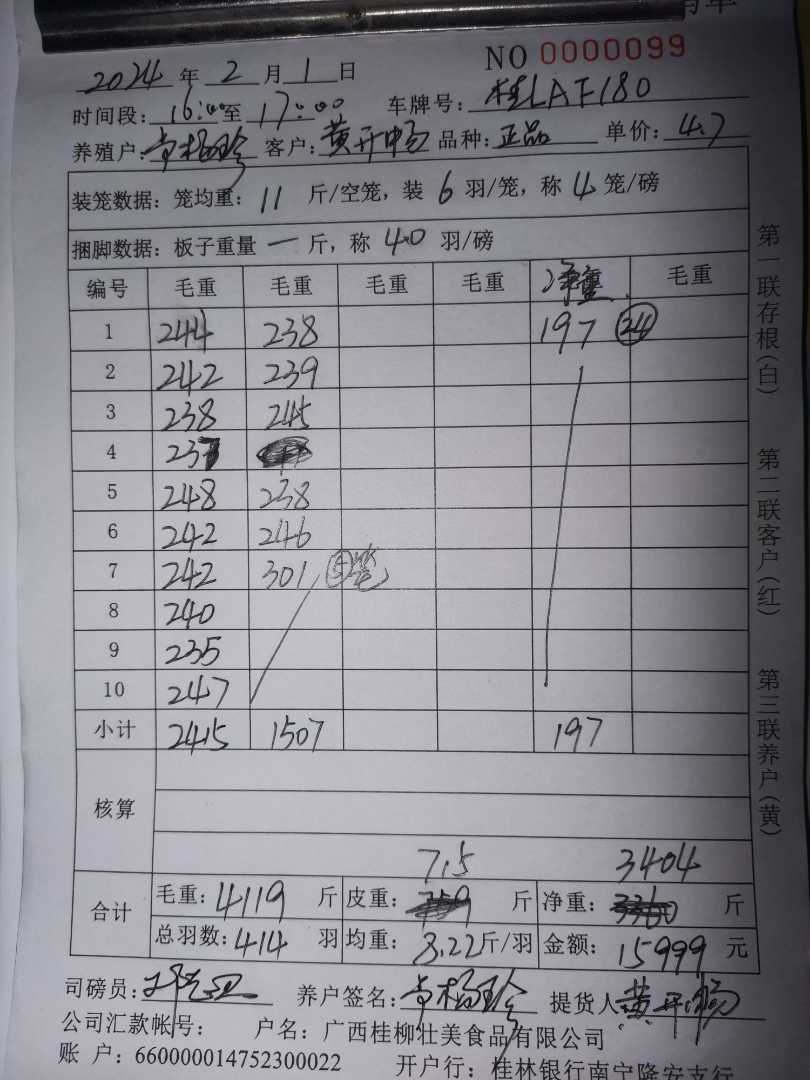 NO 0000099
2024 年 2 月 1 日
时间段: 16:00 至 17:00 车牌号: 桂LAF180
养殖户: 客户: 黄开畅 品种: 正品 单价: 4.7
装笼数据: 笼均重: 11 斤/空笼, 装 6 羽/笼, 称 4 笼/磅
捆脚数据: 板子重量 一 斤, 称 40 羽/磅
编号 毛重 毛重 毛重 毛重 净重 毛重
1 244 238 197 24
2 242 239
3 238 245
4 237
5 248 238
6 242 246
7 242 301 5笼
8 240
9 235
10 247
小计 2415 1507 197
核算
715 3404
合计 毛重: 4119 斤 皮重: 斤 净重: 斤
总羽数: 414 羽 均重: 8.22 斤/羽 金额: 15999 元
司磅员: 养户签名: 提货人 黄开畅
公司汇款帐号: 户名: 广西桂柳壮美食品有限公司
账 户: 660000014752300022 开户行: 桂林银行南宁隆安支行
第一联存根(白) 第二联客户(红) 第三联养户(黄)